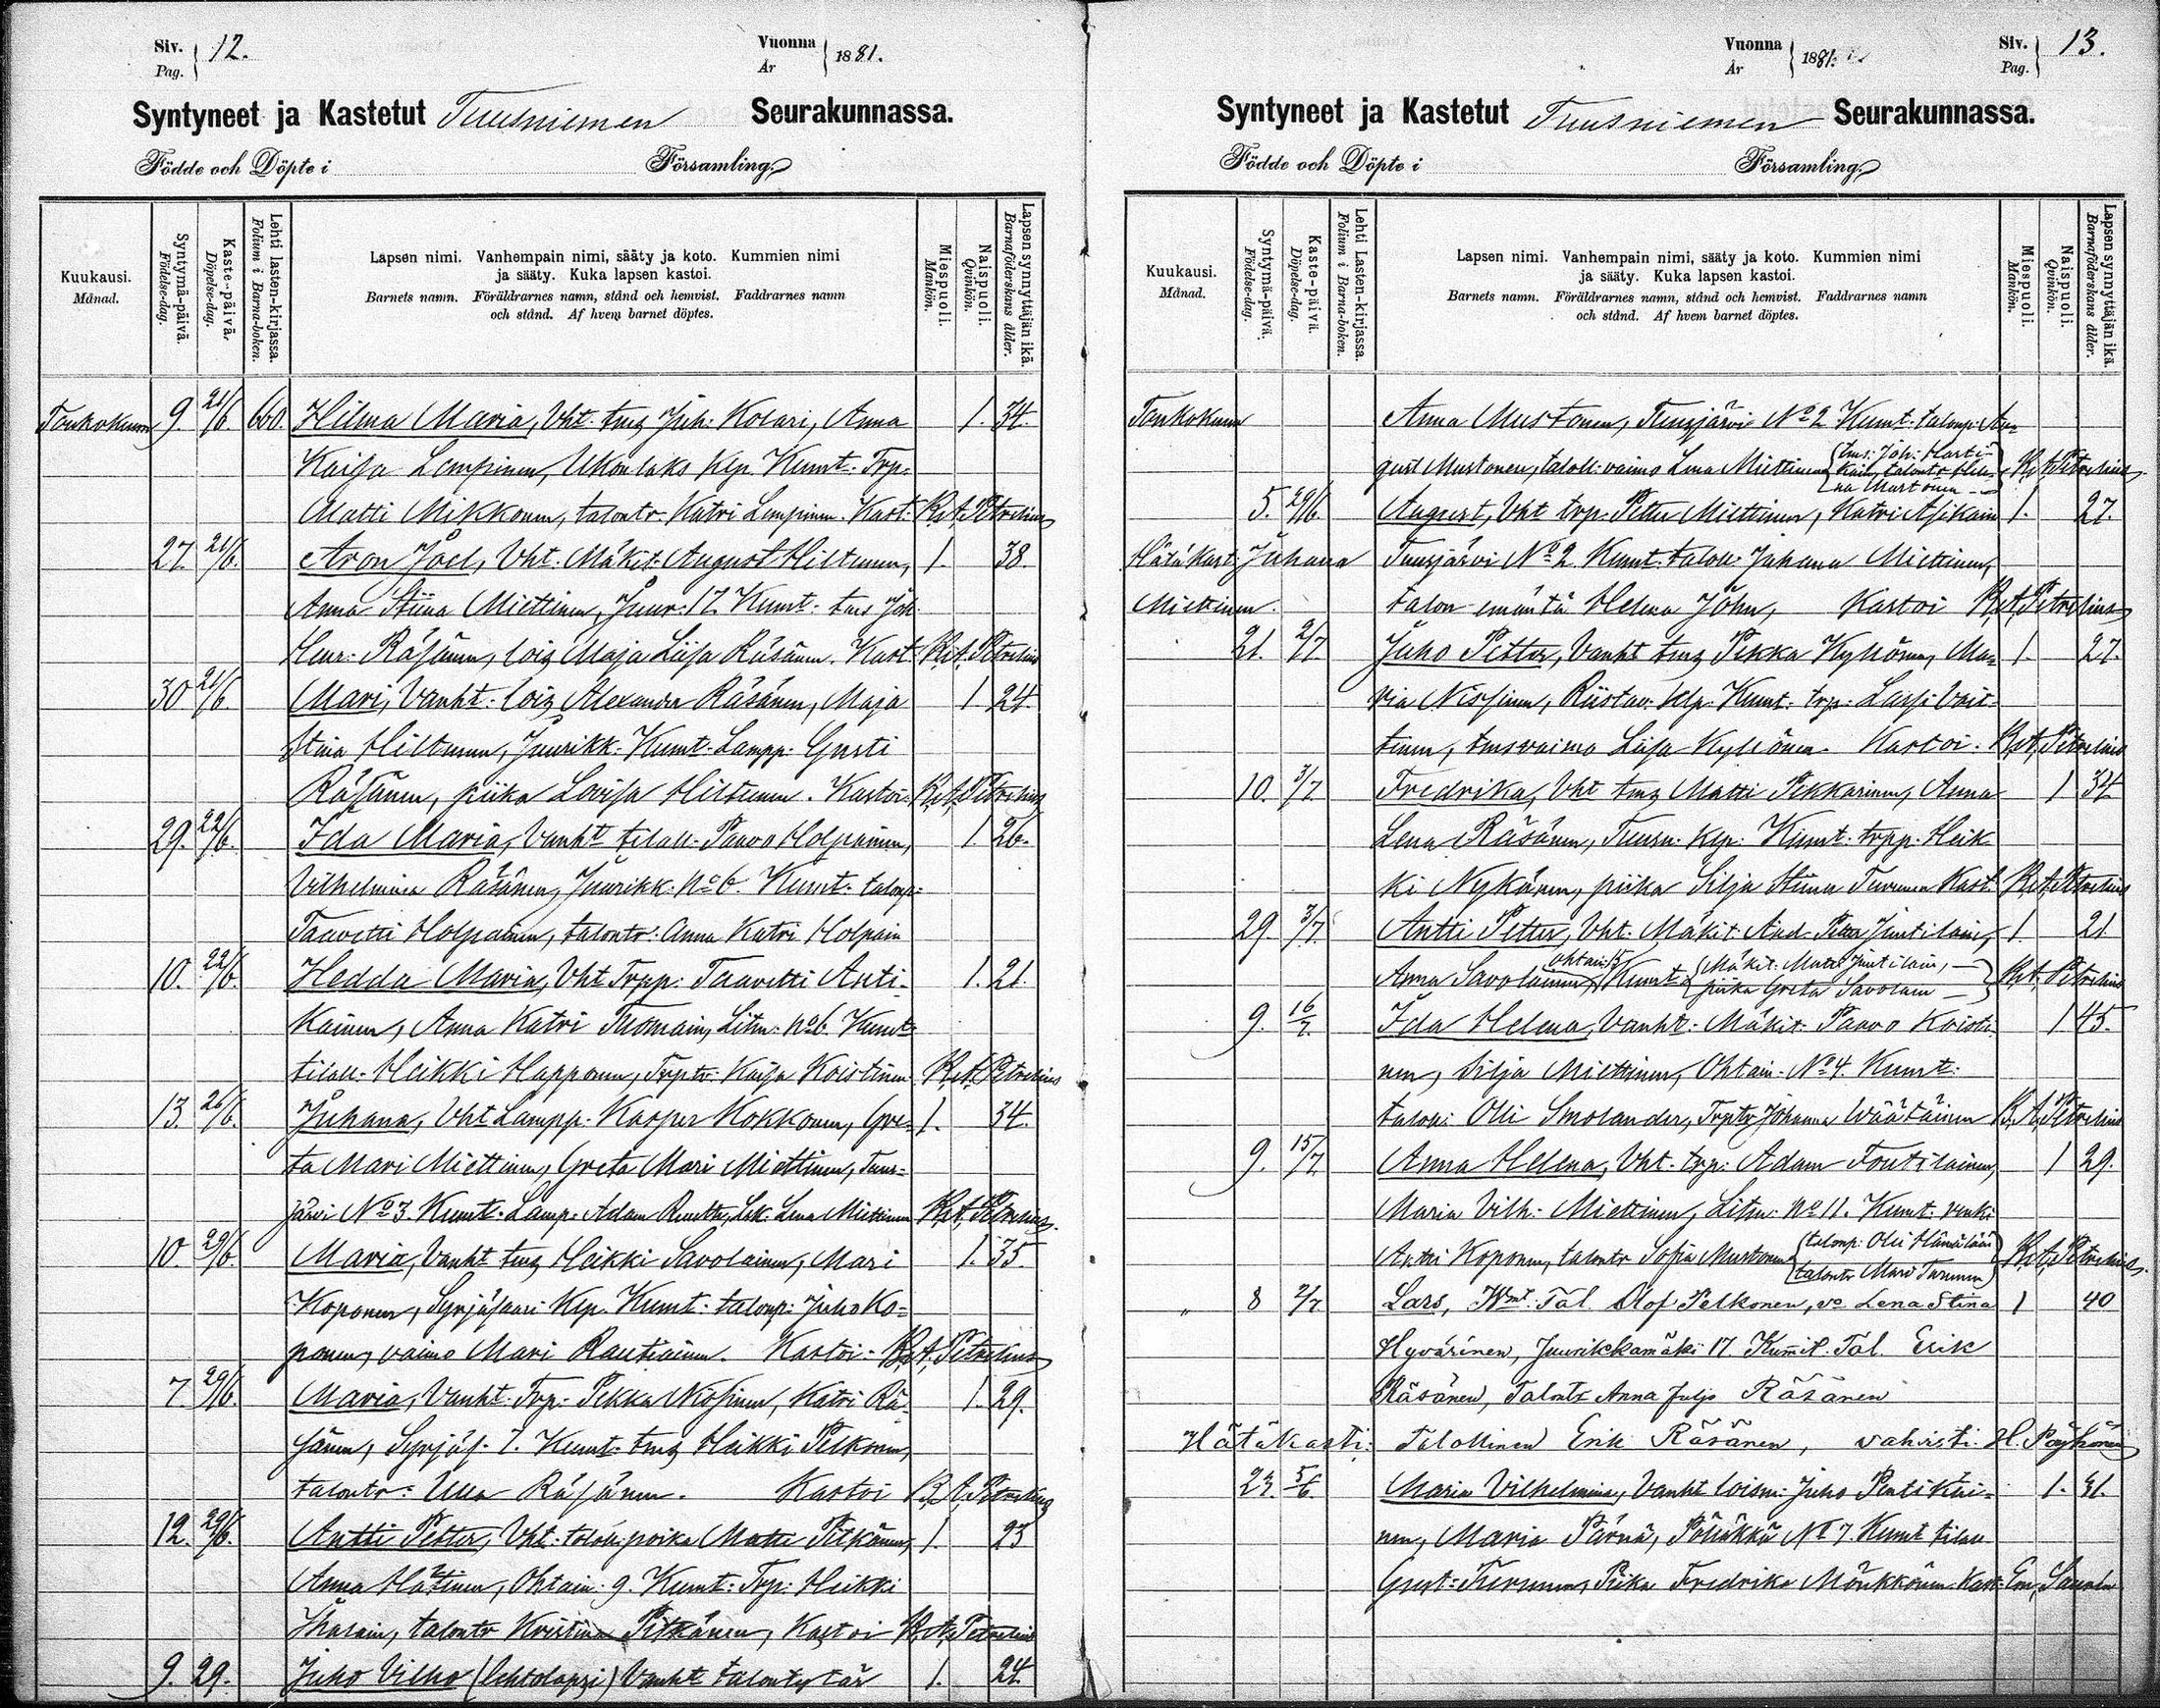 Siv. Pag. 12. Vuonna År 1881.
Syntyneet ja Kastetut Tuusniemen Seurakunnassa.
Födde och Döpte i Församling.
Kuukausi. Månad. Syntymä-päivä. Födelse-dag. Kaste-päivä. Döpelse-dag. Lehti lasten-kirjassa. Folium i Barna-boken. Lapsen nimi. Vanhempain nimi, sääty ja koto. Kummien nimi ja sääty. Kuka lapsen kastoi. Barnets namn. Föräldrarnes namn, stånd och hemvist. Faddrarnes namn och stånd. Af hvem barnet döptes. Miespuoli. Mankön. Naispuoli. Qvinkön. Lapsen synnyttäjän ikä. Barnaföderskans ålder.
Toukokuun 9. 21/6. 600. Hilma Maria, Vht. tmz Juh: Kolari, Anna 1. 34.
Kaisa Lempinen, Ukonlaks Klp. Kumt. Trp.
Matti Mikkonen, talontr Katri Lempinen. Kast: R. A. Petrelius
27. 21/6. Aron Joel, Vht. Mäkit. August Hiltunen, 1. 38.
Anna Stiina Miettinen, Juur: 17. Kumt. tms Joh
Henr: Räsänen, loiz Maja Liisa Räsänen. Kast: R. A. Petrelius
30 21/6. Mari, Vanht. loiz Alexander Räsänen, Maja 1. 24.
Stina Hiltunen, Juurikk. Kumt. Lampp. Gusti
Räsänen, piika Lovisa Hiltunen. Kastoi: R. A. Petrelius
29. 22/6. Ida Maria, Vanht tilall. Paavo Holpainen, 1. 26.
Vilhelmina Räsänen, Juurikk. No 6. Kumt. talonp.
Taavetti Holpainen, talontr: Anna Katri Holpain
10. 22/6. Hedda Maria, Vht Trpp. Taavetti Anti- 1. 21.
kainen, Anna Katri Tuomain, Litm. No 6. Kumt:
tilall: Heikki Happonen, Trptr. Kaisa Koistinen R. A. Petrelius
13. 26/6. Juhana, Vht Lampp. Kasper Kokkonen, Gre- 1. 34.
ta Mari Miettinen, Greta Mari Miettinen, Tuus-
järvi No 3. Kumt. Lamp. Adam Lena Miettinen R. A. Petrelius.
10. 29/6. Maria, Vanht tmz Heikki Savolainen, Mari 1. 35.
Koponen, Syrjäsaari Klp. Kumt. talonp: Juho Ko-
ponen, vaimo Mari Rautiainen. Kastoi. R. A. Petrelius
7. 29/6. Maria, Vanht. Trp. Pekka Nissinen, Katri Rä- 1. 29.
sänen, Syrjäs. 7. Kumt. tmz Heikki Pelkonen,
talontr: Ulla Räsänen. Kastoi R. A. Petrelius
12. 29/6. Antti Petter, Vht. taloll: poika Matti Pitkänen, 1. 23
Anna Hätinen, Ohtain. 9. Kumt. Trp: Heikki
talontr Kristina Pitkänen, Kastoi R. A. Petrelius
9. 29. Juho Vilho (lehtolapsi) Vanht talontytär 1. 24.
Vuonna År 1881. Siv. Pag. 13.
Syntyneet ja Kastetut Tuusniemen Seurakunnassa.
Födde och Döpte i Församling.
Kuukausi. Månad. Syntymä-päivä. Födelse-dag. Kaste-päivä. Döpelse-dag. Lehti Lasten-kirjassa. Folium i Barna-boken. Lapsen nimi. Vanhempain nimi, sääty ja koto. Kummien nimi ja sääty. Kuka lapsen kastoi. Barnets namn. Föräldrarnes namn, stånd och hemvist. Faddrarnes namn och stånd. Af hvem barnet döptes. Miespuoli. Mankön. Naispuoli. Qvinkön. Lapsen synnyttäjän ikä. Barnaföderskans ålder.
Toukokuun Anna Mustonen, Tuusjärvi No 2 Kumt. talonp. Au-
gust Mustonen, taloll: vaimo Lena Miettinen (tms: Joh: Harti- kain, talontr Hele- na Mustonen) R. A. Petrelius
5. 29/6. August, Vht trp. Petter Miettinen, Katri Asikain 1. 27.
Hätäkast: Juhana Tuusjärvi No 2. Kumt. taloll: Juhana Miettinen,
Miettinen. talon emäntä Helena John, Kastoi R. A. Petrelius
21. 2/7. Juho Petter, Vanht tmz Pekka Kyllönen, Ma- 1. 27.
ria Nissinen, Riistav. klp. Kumt. trp. Lassi Vait-
tinen, tmsvaimo Liisa Kyllönen. Kastoi. R. A. Petrelius
10. 3/7. Fredrika, Vht tmz Matti Pekkarinen, Anna 1 34
Lena Räsänen, Tuusn. klp. Kumt. trpp. Heik
ki Nykänen, piika Silja Stiina Turunen Kast. R. A. Petrelius
29. 3/7. Antti Petter, Vht. Mäkit. And. Petter Juntilain, 1. 21
Anna Savolainen, Ohtain Kumt. (Mäkit. Matti Juntilain, piika Greta Savolain) R. A. Petrelius
9. 16/7. Ida Helena, Vanht. Mäkit. Paavo Koisti- 1. 45.
nen, Silja Miettinen, Ohtain. No 4. Kumt.
taloll: Olli Smolander, Trptr Johanna Wäätäinen R. A. Petrelius
9. 15/7. Anna Helena, Vht. trp. Adam Tontilainen, 1 29.
Maria Vilh. Miettinen, Litm. No 11. Kumt. renki
Antti Koponen, talontr Sofia Mustonen (talonp: Olli Hämäläin talontr Mari Turunen) R. A. Petrelius.
" 8 2/7 Lars, Wmt. Tal. Olof Pelkonen, vo Lena Stina 1 40
Hyvärinen, Juurikkamäki 17. Kumit. Tal. Erik
Räsänen, Talontr Anna Julja Räsänen
Hätäkasti: Talollinen Erik Räsänen, vahvisti. H. Pöyhönen
23. 5/6. Maria Vilhelmina, Vanht loism. Juho Pentikäi- 1. 31.
nen, Maria Pärnä, Pölläkkä No 7. Kumt tilall
Gust: Turunen, Piika Fredrika Mönkkönen. Kast: